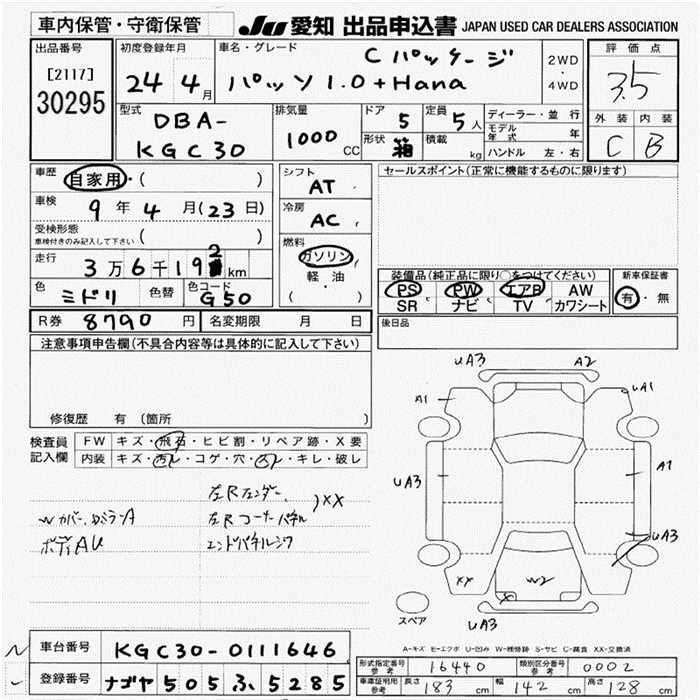 車内保管・守衛保管
JU 愛知 出品申込書 JAPAN USED CAR DEALERS ASSOCIATION
出品番号
[2117]
30295
初度登録年月
24 4月
車名・グレード
C パッケージ
パッソ 1.0 + Hana
2WD
・
4WD
評価点
3.5
外装 内装
C B
型式
DBA-
KGC30
排気量
1000 CC
ドア 5
形状 箱
定員 5人
積載 kg
ディーラー・並行
モデル年式 年
ハンドル 左・右
車歴 自家用・( )
車検 9年 4月(23日)
受検形態
車検付きのみ記入して下さい ( )
走行 3万6千192km
色 ミドリ 色替 色コード G50
シフト AT
冷房 AC
燃料
ガソリン
軽油
( )
セールスポイント(正常に機能するものに限ります)
装備品(純正品に限り○をつけてください)
PS PW エアB AW
SR ナビ TV カワシート
新車保証書
有・無
R券 8790円 名変期限 月 日
後日品
注意事項申告欄(不具合内容等は具体的に記入して下さい)
修復歴 有 (箇所 )
検査員記入欄
FW キズ・飛石・ヒビ割・リペア跡・X要
内装 キズ・汚レ・コゲ・穴・凸レ・キレ・破レ
左Rフェンダー
左Rコーナーパネル )XX
エンドパネルシワ
ボディAU
UA3 A2
A1 UA1
UA3 A1
UA3
XX W2 X
スペア
UA3
A-キズ E-エクボ U-凹み W-補修跡 S-サビ C-腐食 XX-交換済
車台番号 KGC30-0111646
登録番号 ナゴヤ 505 ふ 5285
形式指定番号 参考 16440 類別区分番号 参考 0002
車庫証明用 参考 長さ 183cm 幅 142cm 高さ 128cm